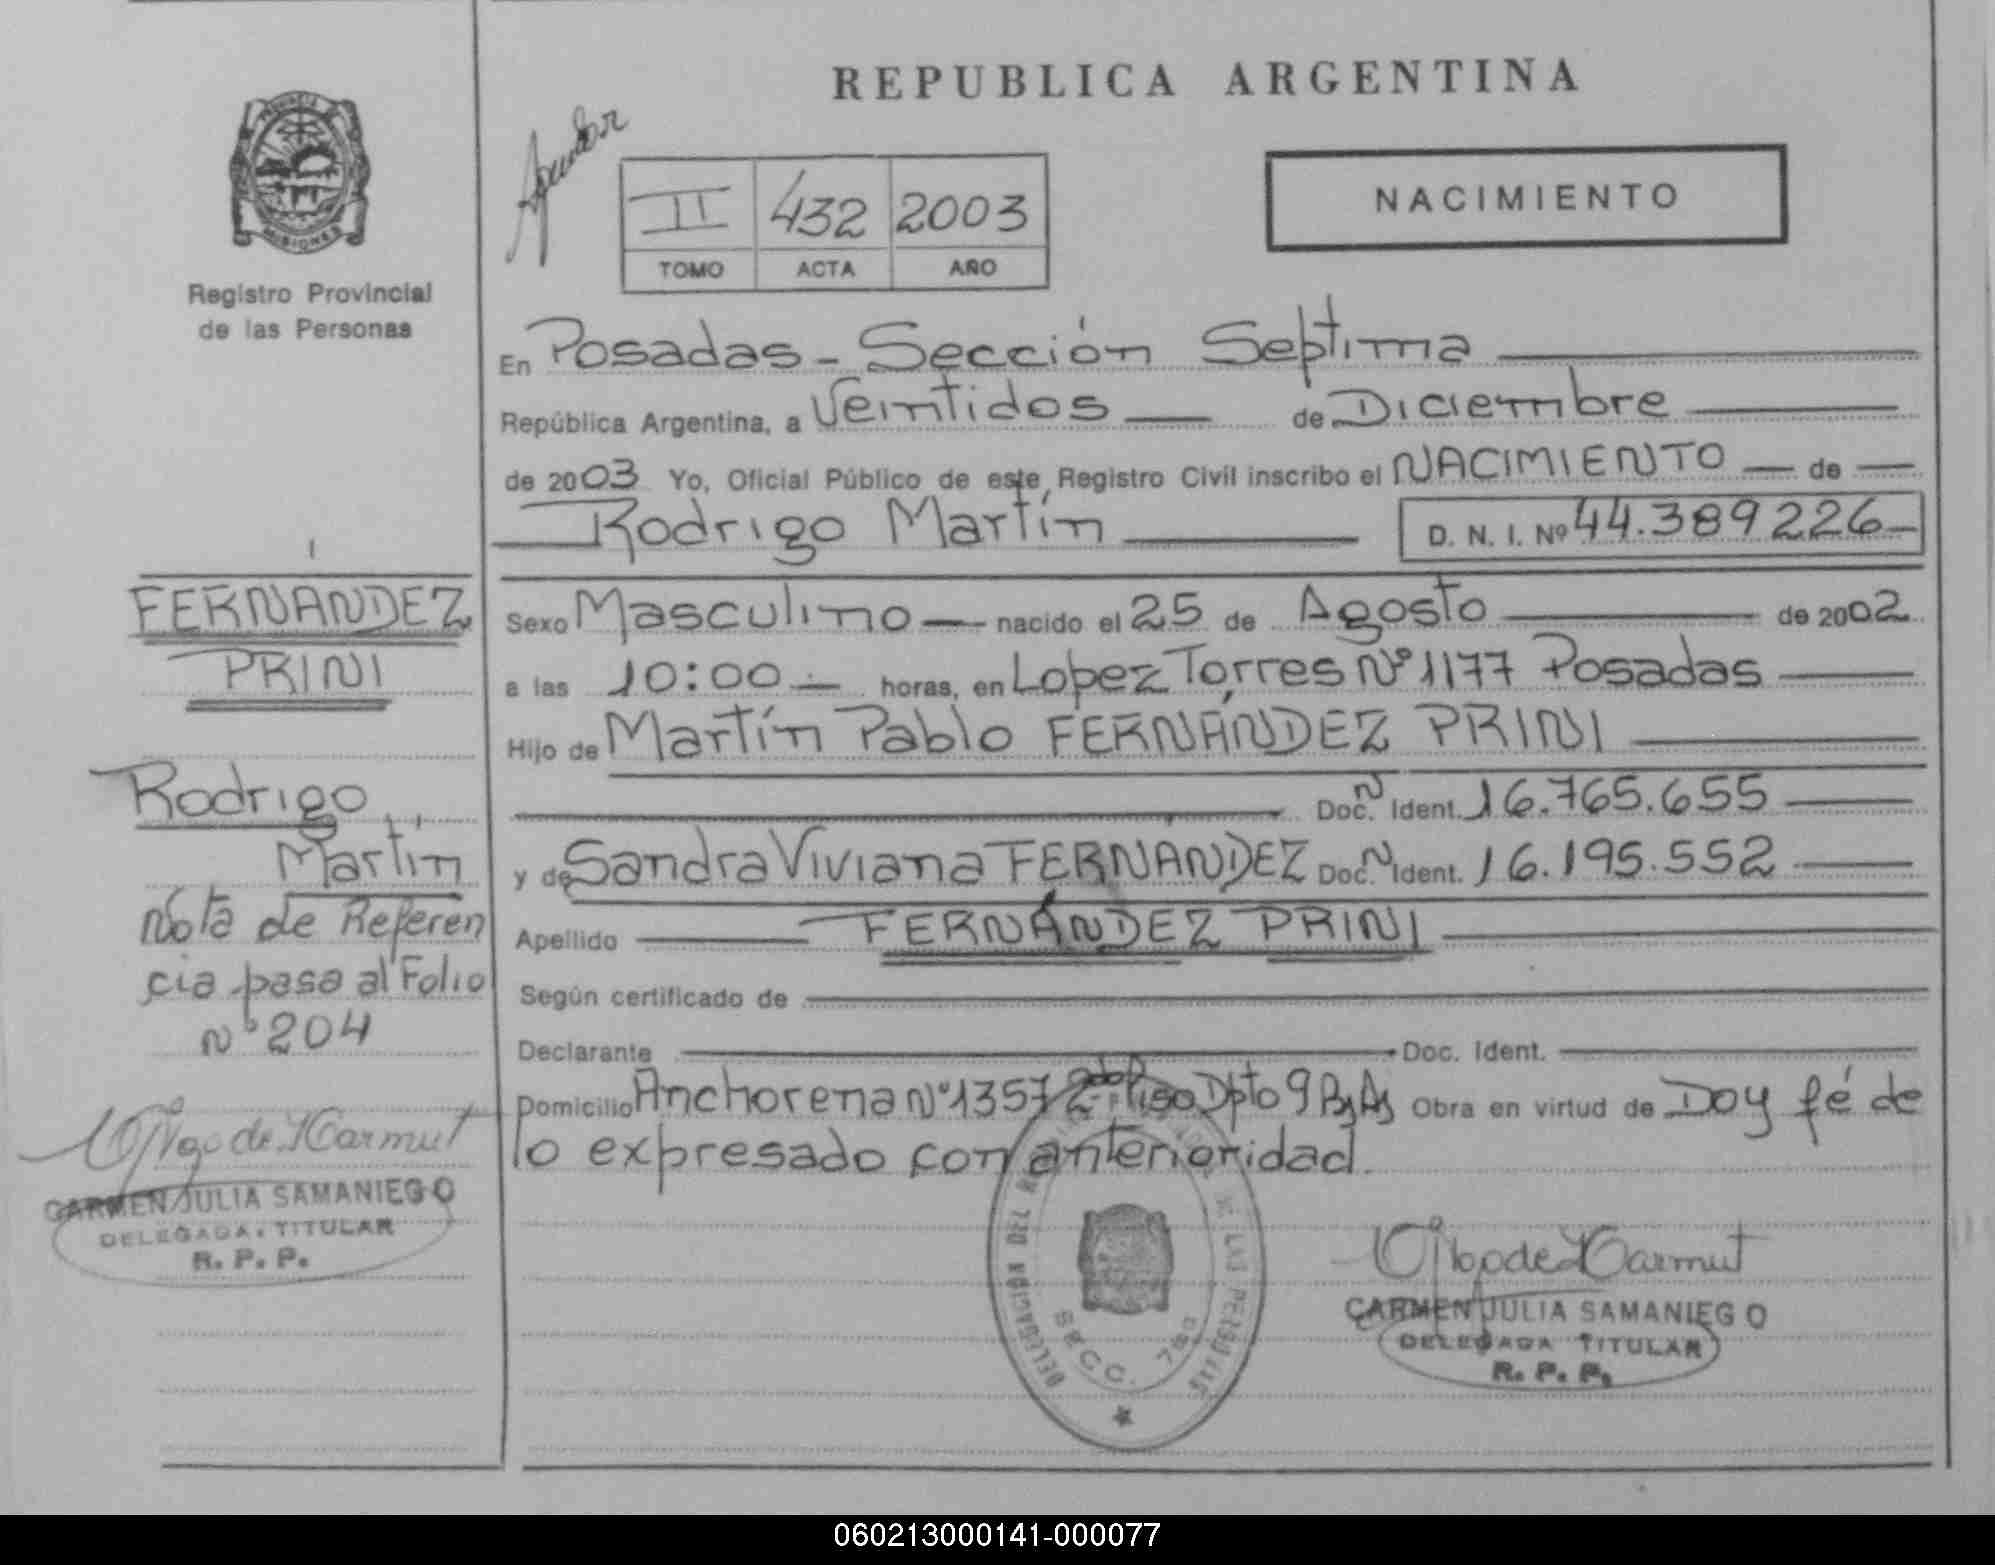 REPUBLICA ARGENTINA
PROVINCIA
MISIONES
Registro Provincial
de las Personas
II 432 2003
TOMO ACTA AÑO
NACIMIENTO
En Posadas - Sección Septima
República Argentina, a Veintidos de Diciembre
de 2003 Yo, Oficial Público de este Registro Civil inscribo el NACIMIENTO de
Rodrigo Martín D. N. I. Nº 44.389226
Sexo Masculino nacido el 25 de Agosto de 2002
a las 10:00 horas, en Lopez Torres Nº 1177 Posadas
Hijo de Martín Pablo FERNÁNDEZ PRINI
Doc. N Ident. 16.765.655
y de Sandra Viviana FERNANDEZ Doc. N Ident. 16.195.552
Apellido FERNÁNDEZ PRINI
Según certificado de
Declarante Doc. Ident.
Domicilio Anchorena Nº 1357 2do Piso Dpto 9 Bs As Obra en virtud de Doy fé de
lo expresado con anterioridad.
FERNANDEZ
PRINI
Rodrigo
Martín
Nota de Referen
cia pasa al Folio
Nº 204
CARMEN JULIA SAMANIEGO
DELEGADA TITULAR
R. P. P.
DELEGACION DEL REGISTRO DE LAS PERSONAS
SECC. 7ma
CARMEN JULIA SAMANIEGO
DELEGADA TITULAR
R. P. P.
060213000141-000077